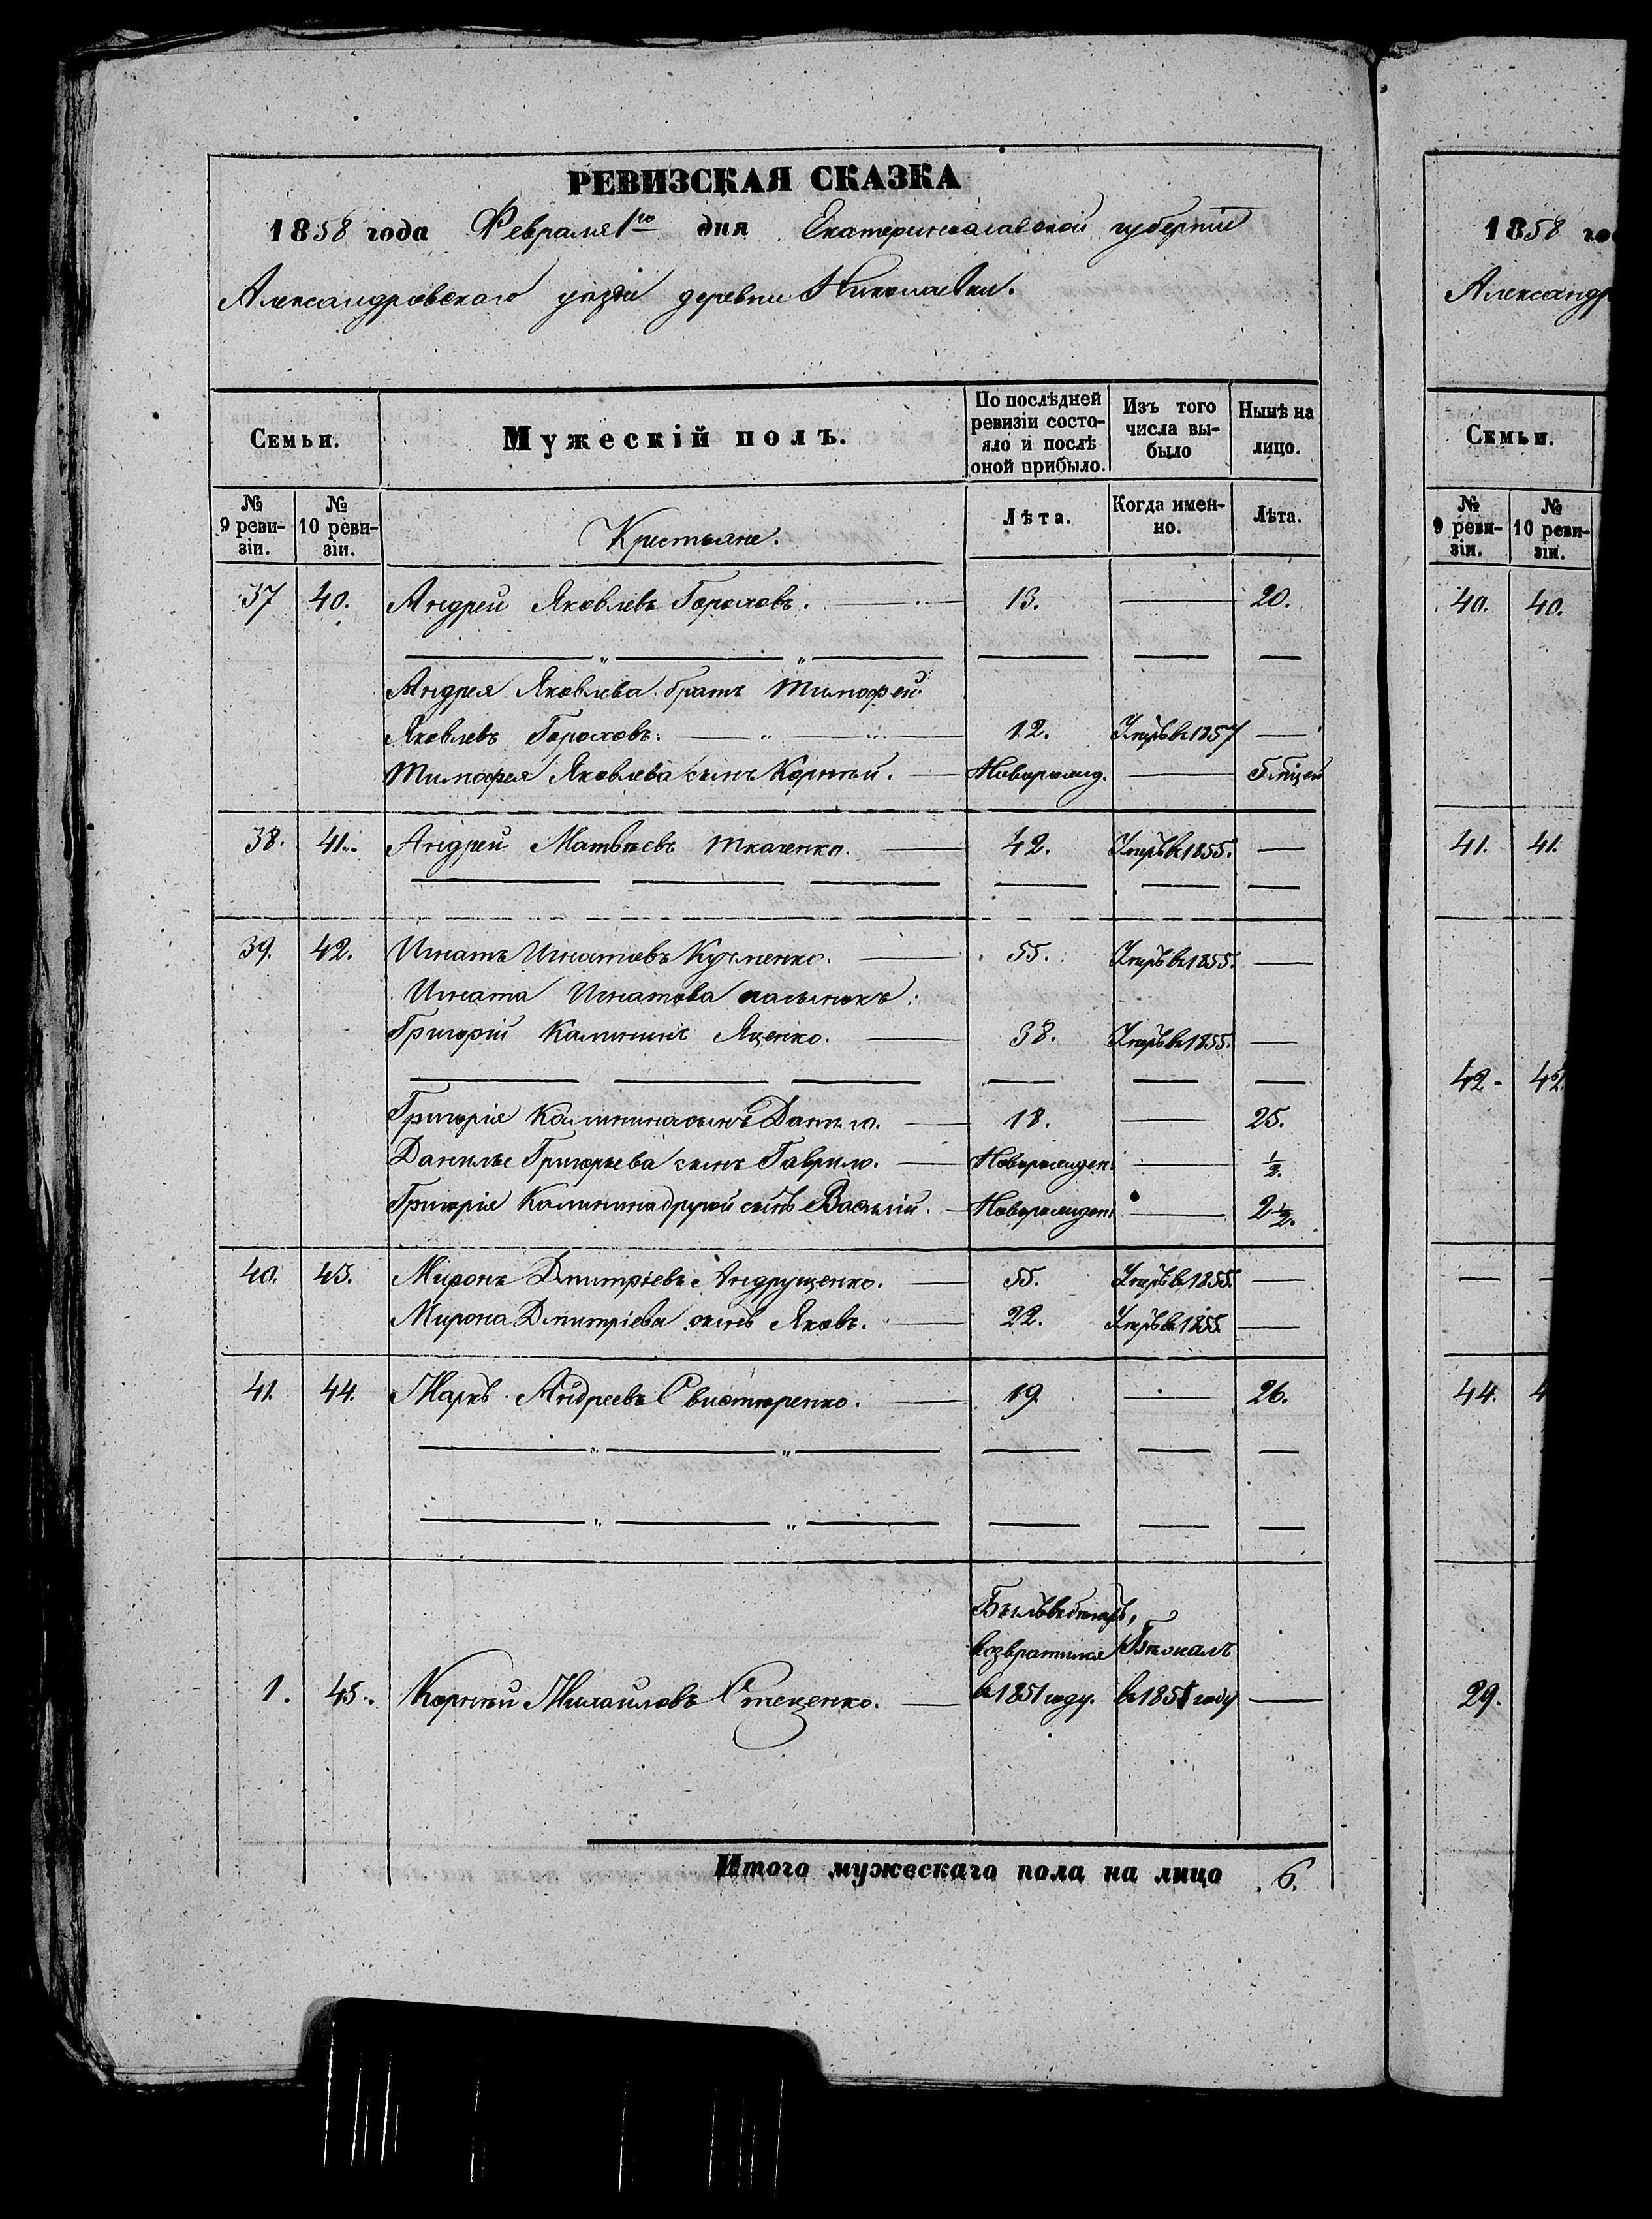 РЕВИЗСКАЯ СКАЗКА
1858 года Февраля 1го дня Екатеринославской губернiи
Александровскаго уезда деревни Николаевки.
Семьи. Мужескiй полъ. По послѣдней ревизiи состояло и послѣ оной прибыло. Изъ того числа выбыло Нынѣ на лицо.
№ 9 ревизiи. № 10 ревизiи. Крестьяне. Лѣта. Когда именно. Лѣта.
37 40. Андрей Яковлевъ Гороховъ. 13. 20.
Андрея Яковлева братъ Тимофей
Яковлевъ Гороховъ. 12. Умеръ въ 1857
Тимофея Яковлева сынъ Корнѣй. Новорожд.
38. 41. Андрей Матвѣевъ Ткаченко. 42. Умеръ въ 1855.
39. 42. Игнатъ Игнатовъ Кузменко. 55. Умеръ въ 1855.
Игната Игнатова пасынокъ:
Григорiй Калининъ Яценко. 38. Умеръ въ 1855.
Григорiя Калинина сынъ Данило. 18. 25.
Данилы Григорьева сынъ Гаврило. Новорожден. 1/2.
Григорiя Калинина другой сынъ Василiй. Новорожден. 2 1/2.
40. 43. Миронъ Дмитрiевъ Андрущенко. 55. Умеръ въ 1855.
Мирона Дмитрiева сынъ Яковъ. 22. Умеръ въ 1855
41. 44. Маркъ Андреевъ Свистюренко. 19. 26.
Былъ въ бегахъ,
возвратился Бежалъ
1. 45. Корнѣй Михайловъ Стеценко. въ 1851 году. въ 1851 году
Итого мужескаго пола на лицо 6.
1858 го
Александр
Семьи.
№ 9 ревизiи. № 10 ревизiи.
40. 40.
41. 41.
42. 42.
44. 4
29.